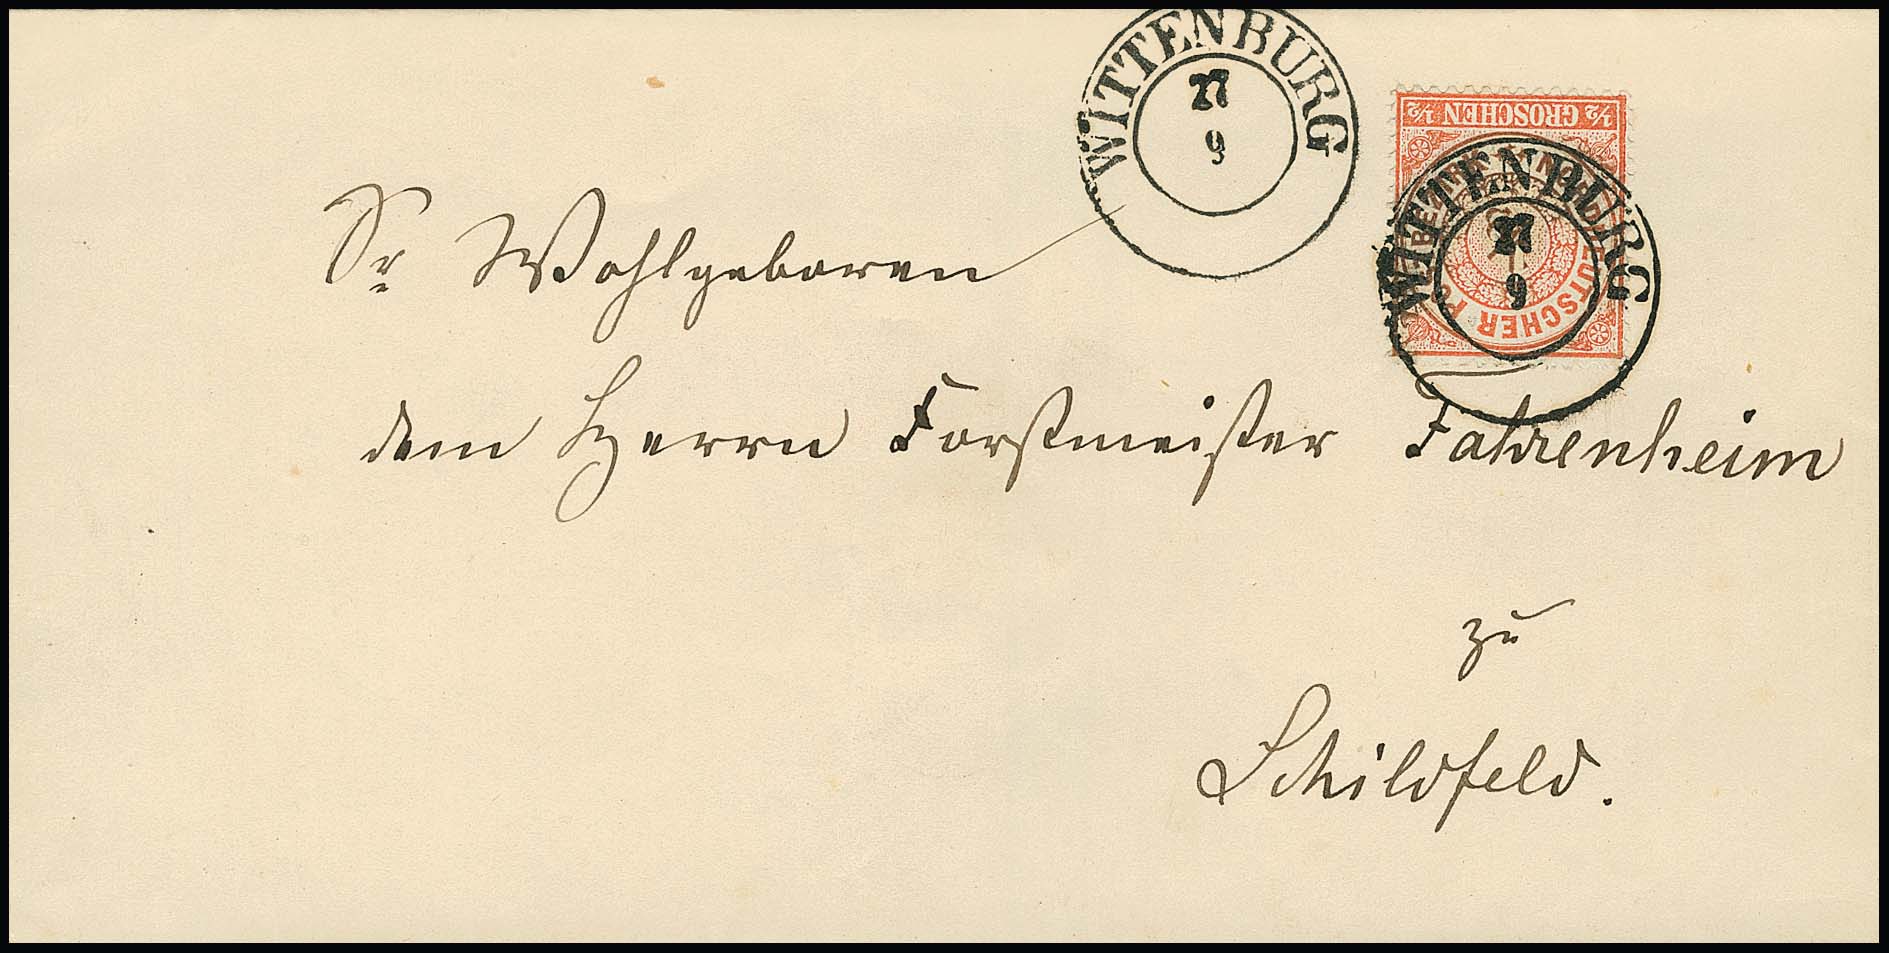 WITTENBURG
27
9
½ GROSCHEN ½
WITTENBURG
27
9
Sr Wohlgeboren
dem Herrn Forstmeister Fahrenheim
zu
Schildfeld.